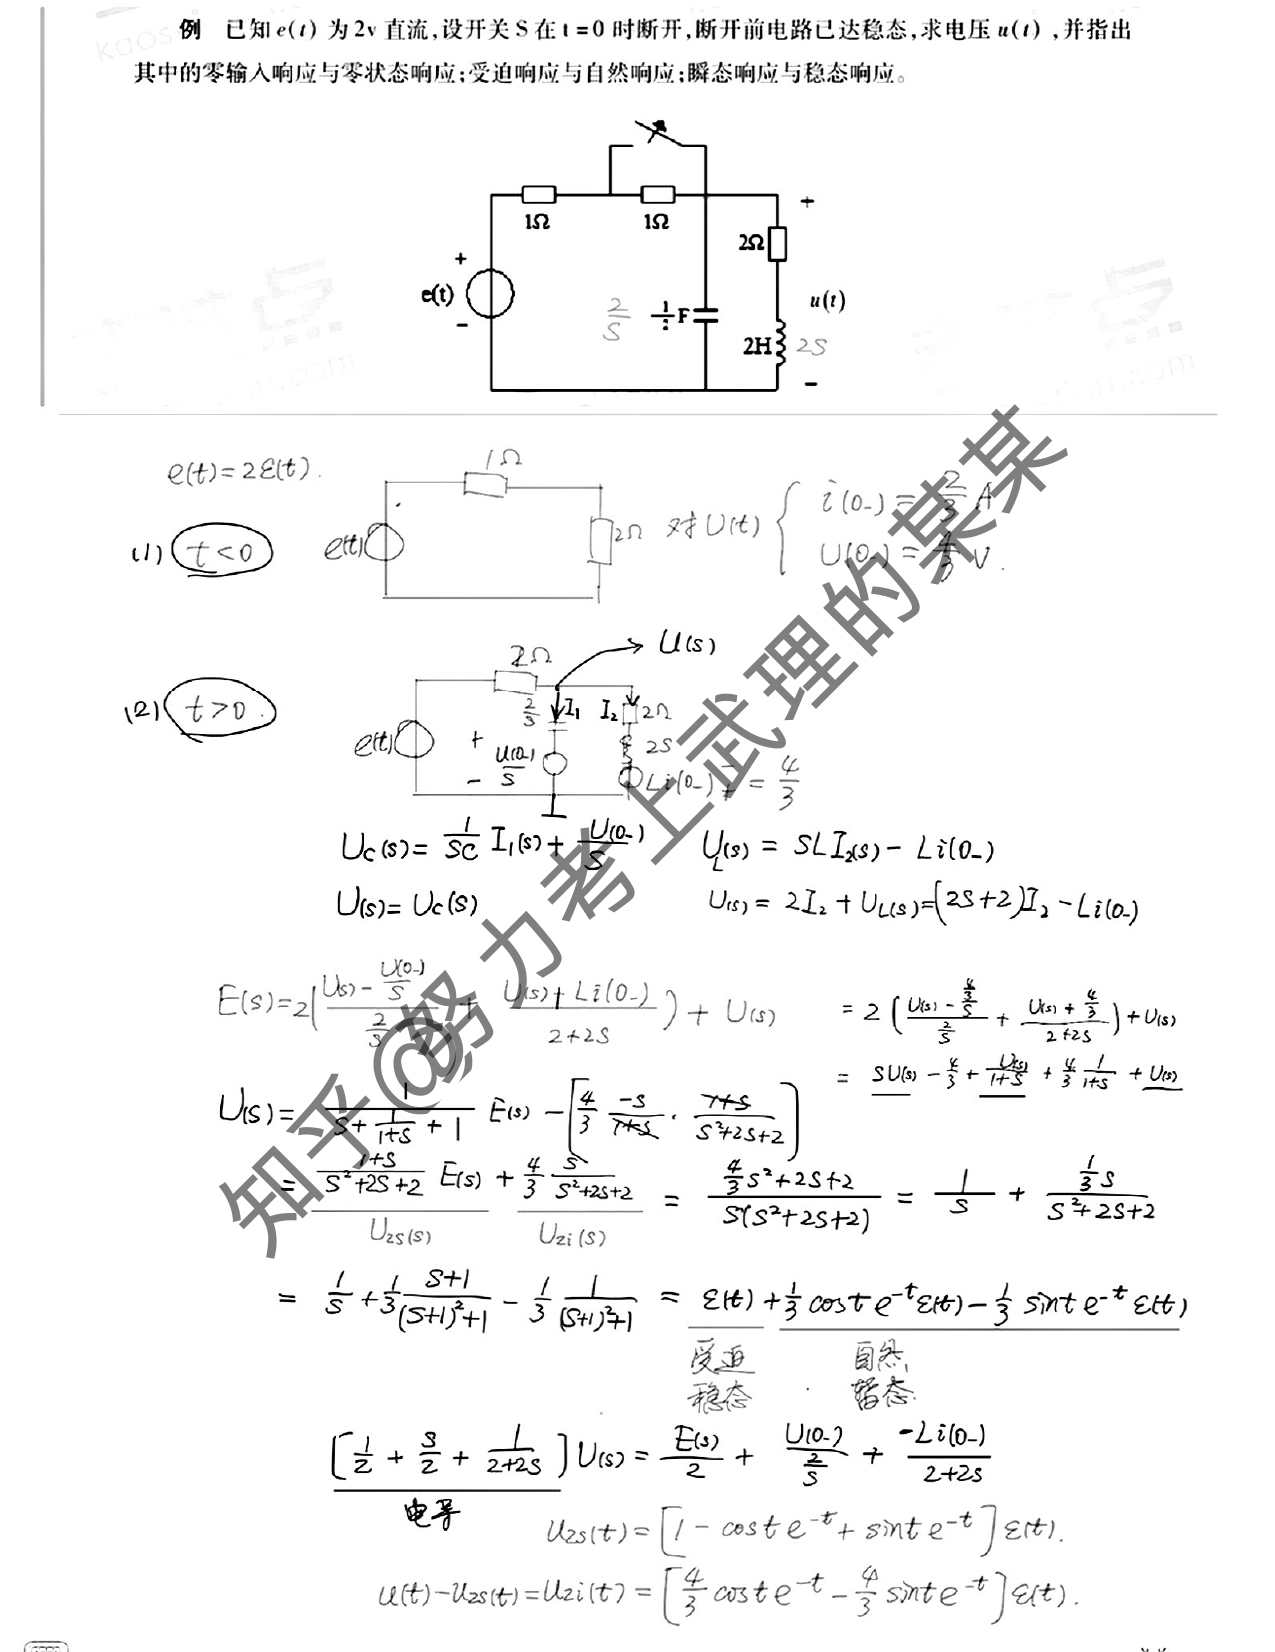 例 已知 e(t) 为 2v 直流,设开关 S 在 t=0 时断开,断开前电路已达稳态,求电压 u(t) ,并指出
其中的零输入响应与零状态响应;受迫响应与自然响应;瞬态响应与稳态响应。
1Ω 1Ω +
2Ω
+
e(t) 2/S 1/2 F u(t)
- 2H 2S
-
e(t)=2ε(t). 1Ω
(1) t<0 e(t) 2Ω 对U(t) { i(0-) = 2/3 A
U(0-) = 4/3 V.
2Ω U(s)
(2) t>0. e(t) 2/S I₁ I₂ 2Ω
+ U(0-)/S - 2S
Li(0-) = 4/3
Uc(s) = 1/SC I₁(s) + U(0-)/S U_L(s) = SLI₂(s) - Li(0-)
U(s) = Uc(s) U(s) = 2I₂ + U_L(s) = (2S+2)I₂ - Li(0-)
E(s) = 2( (U(s) - U(0-)/S)/(2/S) + (U(s)+Li(0-))/(2+2S) ) + U(s) = 2( (U(s) - (4/3)/S)/(2/S) + (U(s)+4/3)/(2+2S) ) + U(s)
= SU(s) - 4/3 + U(s)/(1+S) + 4/3 1/(1+S) + U(s)
U(s) = 1/(S + 1/(1+S) + 1) E(s) - [ 4/3 -S/(1+S) · (1+S)/(S²+2S+2) ]
= (1+S)/(S²+2S+2) E(s) + 4/3 S/(S²+2S+2) = (4/3 S²+2S+2)/(S(S²+2S+2)) = 1/S + (1/3 S)/(S²+2S+2)
Uzs(s) Uzi(s)
= 1/S + 1/3 (S+1)/((S+1)²+1) - 1/3 1/((S+1)²+1) = ε(t) + 1/3 cost e^-t ε(t) - 1/3 sint e^-t ε(t)
受迫 自然
稳态 暂态
[ 1/2 + S/2 + 1/(2+2S) ] U(s) = E(s)/2 + U(0-)/(2/S) + -Li(0-)/(2+2S)
电导
Uzs(t) = [1 - cost e^-t + sint e^-t] ε(t).
u(t) - Uzs(t) = Uzi(t) = [4/3 cost e^-t - 4/3 sint e^-t] ε(t).
知乎 @努力考上武理的某某